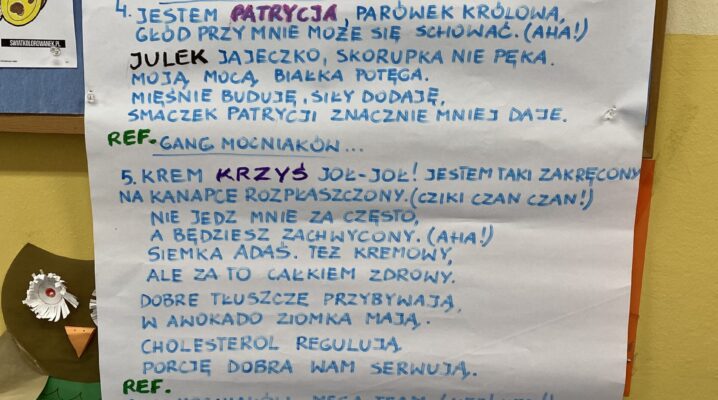 SWIATKOLOROWANEK.PL
4. JESTEM PATRYCJA, PARÓWEK KRÓLOWA,
GŁÓD PRZY MNIE MOŻE SIĘ SCHOWAĆ. (AHA!)
JULEK JAJECZKO, SKORUPKA NIE PĘKA.
MOJĄ MOCĄ BIAŁKA POTĘGA.
MIĘŚNIE BUDUJĘ, SIŁY DODAJĘ,
SMACZEK PATRYCJI ZNACZNIE MNIEJ DAJE.
REF. GANG MOCNIAKÓW...
5. KREM KRZYŚ JOŁ-JOŁ! JESTEM TAKI ZAKRĘCONY
NA KANAPCE ROZPŁASZCZONY. (CZIKI CZAN CZAN!)
NIE JEDZ MNIE ZA CZĘSTO,
A BĘDZIESZ ZACHWYCONY. (AHA!)
SIEMKA ADAŚ. TEŻ KREMOWY,
ALE ZA TO CAŁKIEM ZDROWY.
DOBRE TŁUSZCZE PRZYBYWAJĄ,
W AWOKADO ZIOMKA MAJĄ.
CHOLESTEROL REGULUJĄ
PORCJĘ DOBRA WAM SERWUJĄ.
REF.